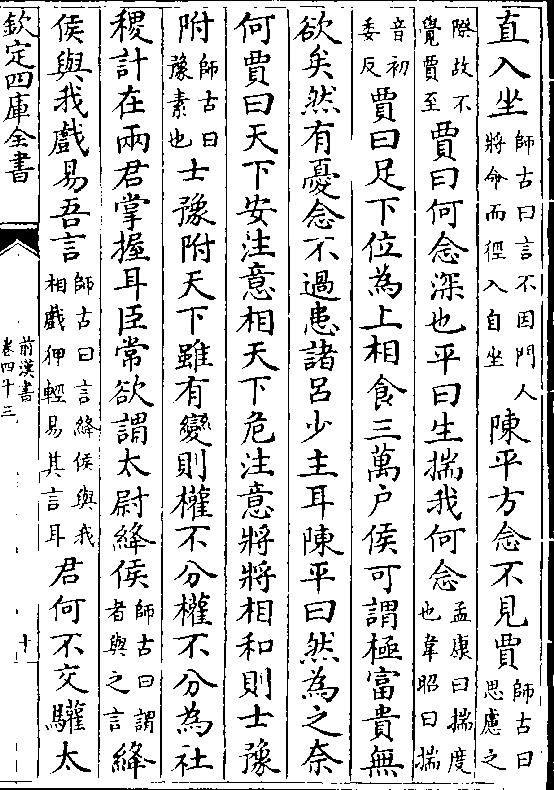 直入坐師古曰言不因門人將命而徑入自坐陳平方念不見賈師古曰思慮之
際故不覺賈至賈曰何念深也平曰生揣我何念孟康曰揣度也韋昭曰揣
音初委反賈曰足下位為上相食三萬户侯可謂極富貴無
欲矣然有憂念不過患諸呂少主耳陳平曰然為之奈
何賈曰天下安注意相天下危注意將將相和則士豫
附師古曰豫素也士豫附天下雖有變則權不分權不分為社
稷計在兩君掌握耳臣常欲謂太尉絳侯師古曰謂者與之言絳
侯與我戲易吾言師古曰言絳侯與我相戲狎輕易其言耳君何不交驩太
欽定四庫全書
前漢書
卷四十三
十